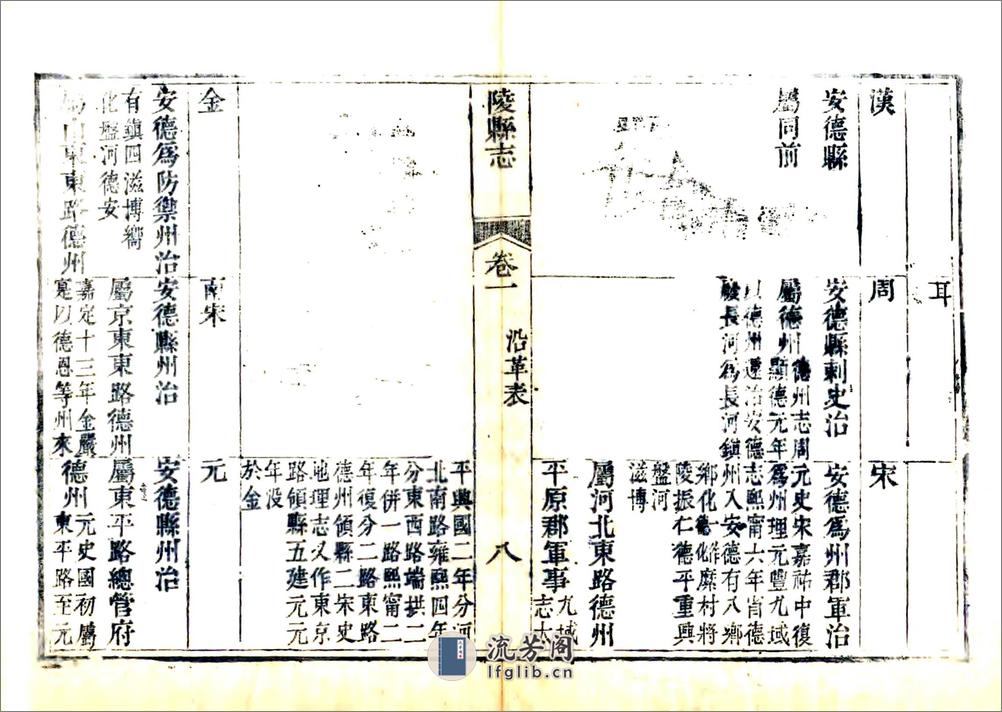 漢
安德縣
屬同前
周
安德縣刺史治
屬德州德州志周
顯德元年
以德州遷治安德
廢長河爲長河鎮
宋
安德爲州郡軍治
元史宋嘉祐中復
爲州理元豐九域
志熙甯六年省德
州入安德有八鄉
鄉化德化作縻村將
陵振仁德平重興
盤河
滋博
屬河北東路德州
平原郡軍事九域
志太
陵縣志
卷一
沿革表
八
平興國二年分河
北南路雍熙四年
分東西路端拱二
年併一路熙甯二
年復分二路東路
德州領縣二宋史
地理志又作東京
路領縣五建元元
年没
於金
金
安德爲防禦州治
有鎮四滋博嚮
化盤河德安
屬山東東路德州
南宋
安德縣州治
屬京東東路德州
嘉定十三年金嚴
寔以德恩等州來
元
安德縣州治
屬東平路總管府
德州元史國初屬
東平路至元
流芳阁
lfglib.cn